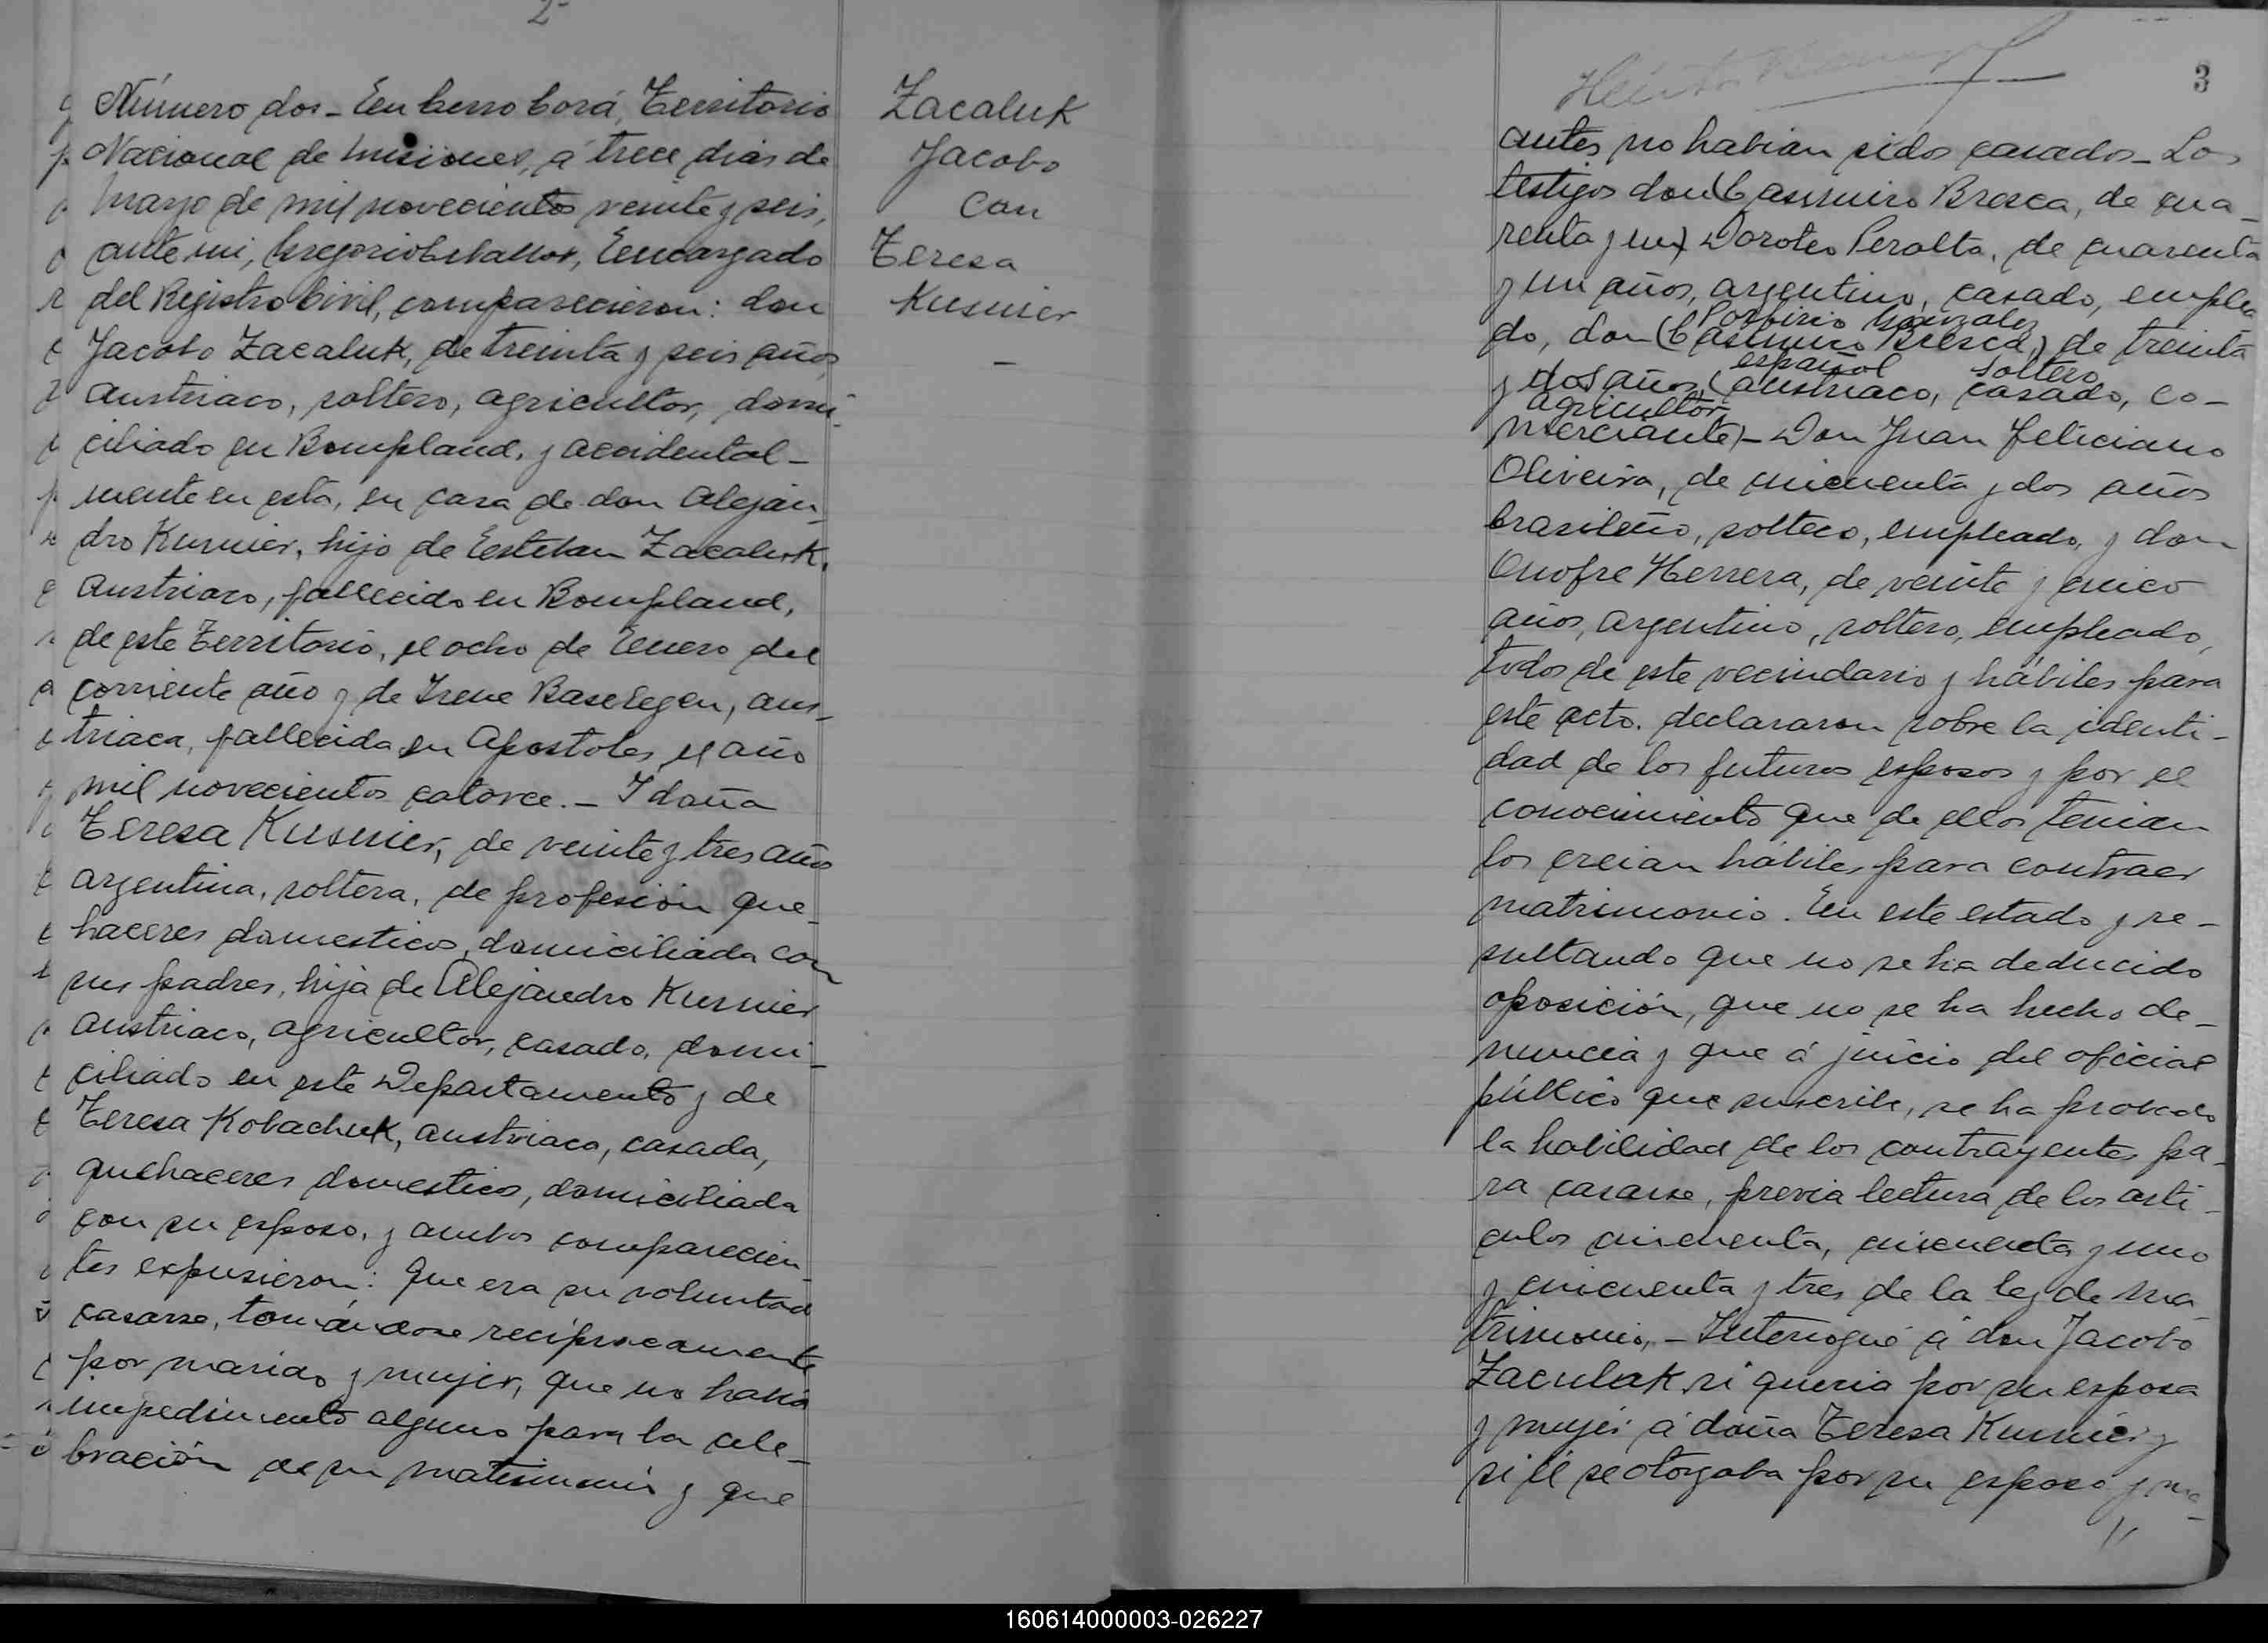 2
Número dos - En Cerro Corá, Territorio
Nacional de Misiones, á trece dias de
Mayo de mil novecientos veinte y seis,
ante mi, Gregorio Ceballos, Encargado
del Registro Civil, comparecieron: don
Jacobo Zacaluk, de treinta y seis años
austriaco, soltero, agricultor, domi-
ciliado en Bompland, y accidental-
mente en esta, en casa de don Alejan-
dro Kusnier, hijo de Esteban Zacaluk,
austriaco, fallecido en Bompland,
de este Territorio, el ocho de Enero del
corriente año y de Irene Baselegen, aus-
triaca, fallecida en Apostoles, el año
mil novecientos catorce. - I doña
Teresa Kusnier, de veinte y tres años
argentina, soltera, de profesión que-
haceres domesticos, domiciliada con
sus padres, hija de Alejandro Kusnier
austriaco, agricultor, casado, domi-
ciliado en este Departamento y de
Teresa Kobachuk, austriaca, casada,
quehaceres domesticos, domiciliada
con su esposo, y ambos comparecien-
tes expusieron: Que era su voluntad
casarse, tomándose recíprocamente
por marido y mujer, que no había
impedimento alguno para la cele-
bración de su matrimonio y que
Zacaluk
Jacobo
Con
Teresa
Kusnier
-
3
antes no habian sidos casados - Los
testigos don (Casimiro Bresca, de cua-
renta y un) Doroteo Peralta, de cuarenta
y un años, argentino, casado, emplea
Porfirio Gonzalez
do, don (Casimiro Bresca,) de treinta
español soltero
y dos años, (austriaco, casado, co-
agricultor
merciante) - Don Juan Feliciano
Oliveira, de cincuenta y dos años
brasileño, soltero, empleado, y don
Onofre Herrera, de veinte y cinco
años, argentino, soltero, empleado,
todos de este vecindario y hábiles para
este acto. declararon sobre la identi-
dad de los futuros esposos y por el
conocimiento que de ellos tenian
los creian hábiles para contraer
matrimonio. En este estado y re-
sultando que no se ha deducido
oposición, que no se ha hecho de-
nuncia y que á juicio del oficial
público que suscribe, se ha probado
la habilidad de los contrayentes pa-
ra casarse, previa lectura de los arti-
culos cincuenta, cincuenta y uno
y cincuenta y tres de la ley de Ma
trimonio, - Interrogué á don Jacobo
Zaculak si queria por su esposa
y mujer á doña Teresa Kusnier y
si él se otorgaba por su esposo y ma-
//
160614000003-026227